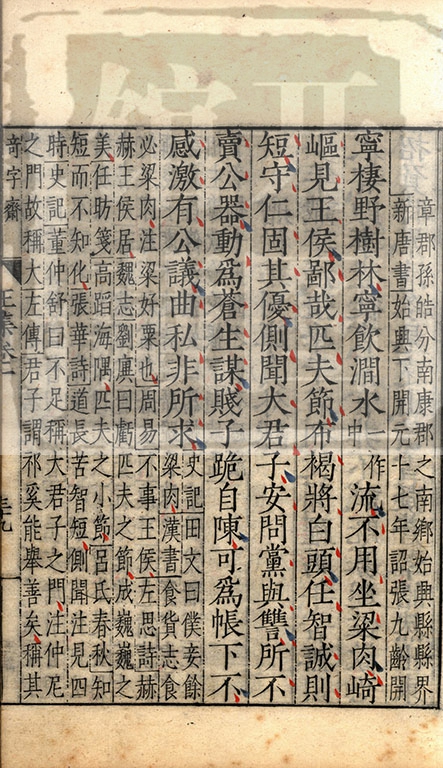 章郡孫皓分南康郡之南鄉始興縣縣界
新唐書始興下開元十七年詔張九齡開
寧棲野樹林寧飲澗水一作中流不用坐粱肉崎
嶇見王侯鄙哉匹夫節布褐將白頭任智誠則
短守仁固其優側聞大君子安問黨與讐所不
賣公器動爲蒼生謀賤子跪自陳可爲帳下不
感激有公議曲私非所求
史記田文曰僕妾餘
粱肉漢書食貨志食
必粱肉注粱好粟也周易不事王侯左思詩赫
赫王侯居魏志劉廙曰虧匹夫之節成巍巍之
美任昉箋高蹈海隅匹夫之小節呂氏春秋知
短而不知化張華詩道長苦智短側聞注見四
時史記董仲舒曰不足稱大君子之門注仲尼
之門故稱大左傳君子謂祁奚能舉善矣稱其
音字齋